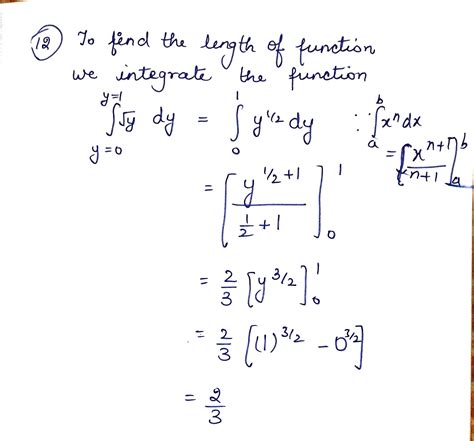 (12) To find the length of function
we integrate the function
∫_{y=0}^{y=1} √y dy = ∫_0^1 y^{1/2} dy ∵ ∫_a^b x^n dx
= [x^{n+1}/n+1]_a^b
= [y^{1/2+1}/(1/2+1)]_0^1
= 2/3 [y^{3/2}]_0^1
= 2/3 [(1)^{3/2} - 0^{3/2}]
= 2/3